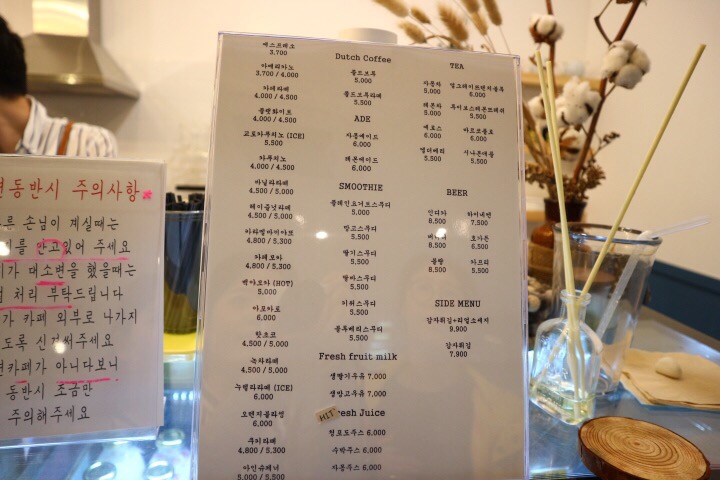 에스프레소
3,700
아메리카노
3,700 / 4,000
카페라떼
4,000 / 4,500
플랫화이트
4,000 / 4,500
교토카푸치노 (ICE)
5,500
카푸치노
4,000 / 4,500
바닐라라떼
4,500 / 5,000
헤이즐넛라떼
4,500 / 5,000
카라멜마키아토
4,800 / 5,300
카페모카
4,800 / 5,300
빽아모카 (HOT)
5,000
아포카토
6,000
핫초코
4,500 / 5,000
녹차라떼
4,500 / 5,000
누텔라라떼 (ICE)
6,000
오렌지콜라썸
6,000
쿠키라떼
4,800 / 5,300
아인슈페너
5,000 / 5,500
Dutch Coffee
콜드브루
5,000
콜드브루라떼
5,500
ADE
자몽에이드
6,000
레몬에이드
6,000
SMOOTHIE
플레인요거트스무디
5,500
망고스무디
5,500
딸기스무디
5,500
딸바스무디
5,500
키위스무디
5,500
블루베리스무디
5,500
Fresh fruit milk
생딸기우유 7,000
생망고우유 7,000
HIT
Fresh Juice
청포도주스 6,000
수박주스 6,000
자몽주스 6,000
TEA
자몽차
5,000
얼그레이프렌치블루
6,000
레몬차
5,000
루이보스레몬트위러
5,500
페퍼스
5,500
마르코폴로
6,000
엘더베리
5,500
시나몬애플
5,500
BEER
인디카
8,500
하이네켄
7,500
6,500
호가든
6,500
블랑
8,500
카프리
5,500
SIDE MENU
감자튀김+리얼소세지
9,900
감자튀김
7,900
동반시 주의사항
른 손님이 계실때는
를 안고있어 주세요
가 대소변을 했을때는
처리 부탁드립니다
가 카페 외부로 나가지
도록 신경써주세요
카페가 아니다보니
동반시 조금만
주의해주세요